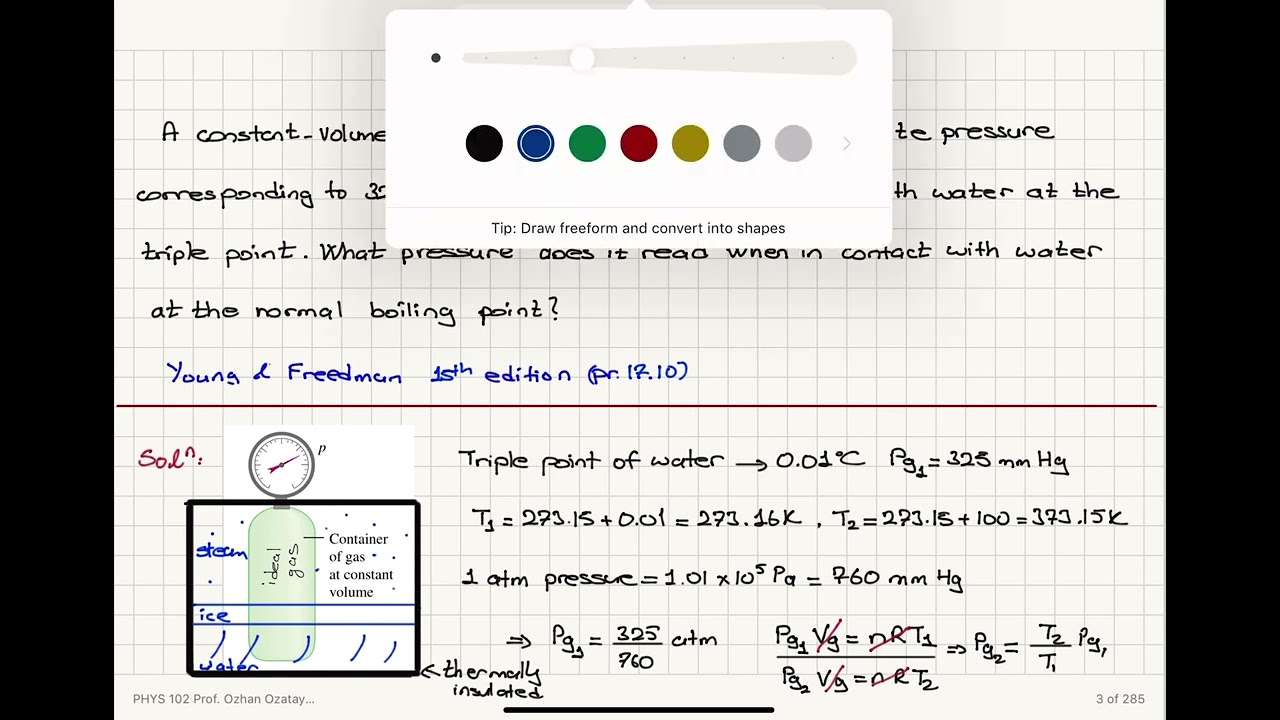 Tip: Draw freeform and convert into shapes
A constant-volume te pressure
corresponding to 32 th water at the
triple point. What pressure does it read when in contact with water
at the normal boiling point?
Young & Freedman 15th edition (pr. 17.10)
Solⁿ:
p
steam
ideal gas
Container
of gas
at constant
volume
ice
water
← thermally
insulated
Triple point of water → 0.01°C Pg₁ = 325 mm Hg
T₁ = 273.15 + 0.01 = 273.16K , T₂ = 273.15 + 100 = 373.15K
1 atm pressure = 1.01 x 10⁵ Pa = 760 mm Hg
⇒ Pg₁ = 325/760 atm
Pg₁ Vg = nRT₁ / Pg₂ Vg = nRT₂ ⇒ Pg₂ = T₂/T₁ Pg₁
PHYS 102 Prof. Ozhan Ozatay...
3 of 285